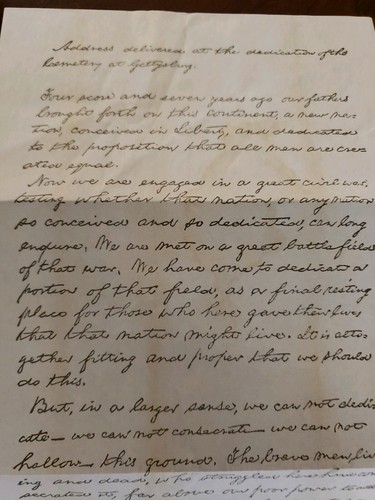 Address delivered at the dedication of the
Cemetery at Gettysburg.
Four score and seven years ago our fathers
brought forth on this continent, a new na-
tion, conceived in Liberty, and dedicated
to the proposition that all men are cre-
ated equal.
Now we are engaged in a great civil war,
testing whether that nation, or any nation
so conceived and so dedicated, can long
endure. We are met on a great battle field
of that war. We have come to dedicate a
portion of that field, as a final resting
place for those who here gave their lives
that that nation might live. It is alto-
gether fitting and proper that we should
do this.
But, in a larger sense, we can not dedi-
cate— we can not consecrate— we can not
hallow— this ground. The brave men, liv-
ing and dead, who struggled here have con-
secrated it, far above our poor power to add